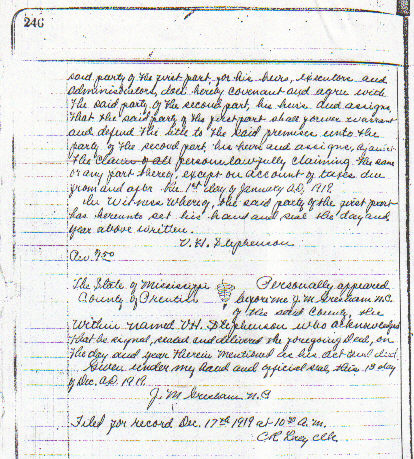 246
said party of the first part, for his heirs, executors and
administrators, does hereby covenant and agree with
the said party of the second part, his heirs and assigns,
that the said party of the first part shall forever warrant
and defend the title to the said premises unto the
party of the second part, his heirs and assigns, against
the claims of all persons lawfully claiming the same
or any part thereof, except on account of taxes due
from and after the 1st day of January A.D. 1919.
In Witness Whereof, the said party of the first part
has hereunto set his hand and seal the day and
year above written.
V. H. Stephenson
The State of Mississippi Personally appeared
County of Prentiss before me J. M.
of the said County, the
within named V.H. Stephenson who acknowledged
that he signed, sealed and delivered the foregoing Deed, on
the day and year therein mentioned as his act and deed.
Given under my hand and official seal, this 13 day
of Dec. A.D. 1919.
J. M.
Filed for record Dec. 17th 1919 at 10 A.M.